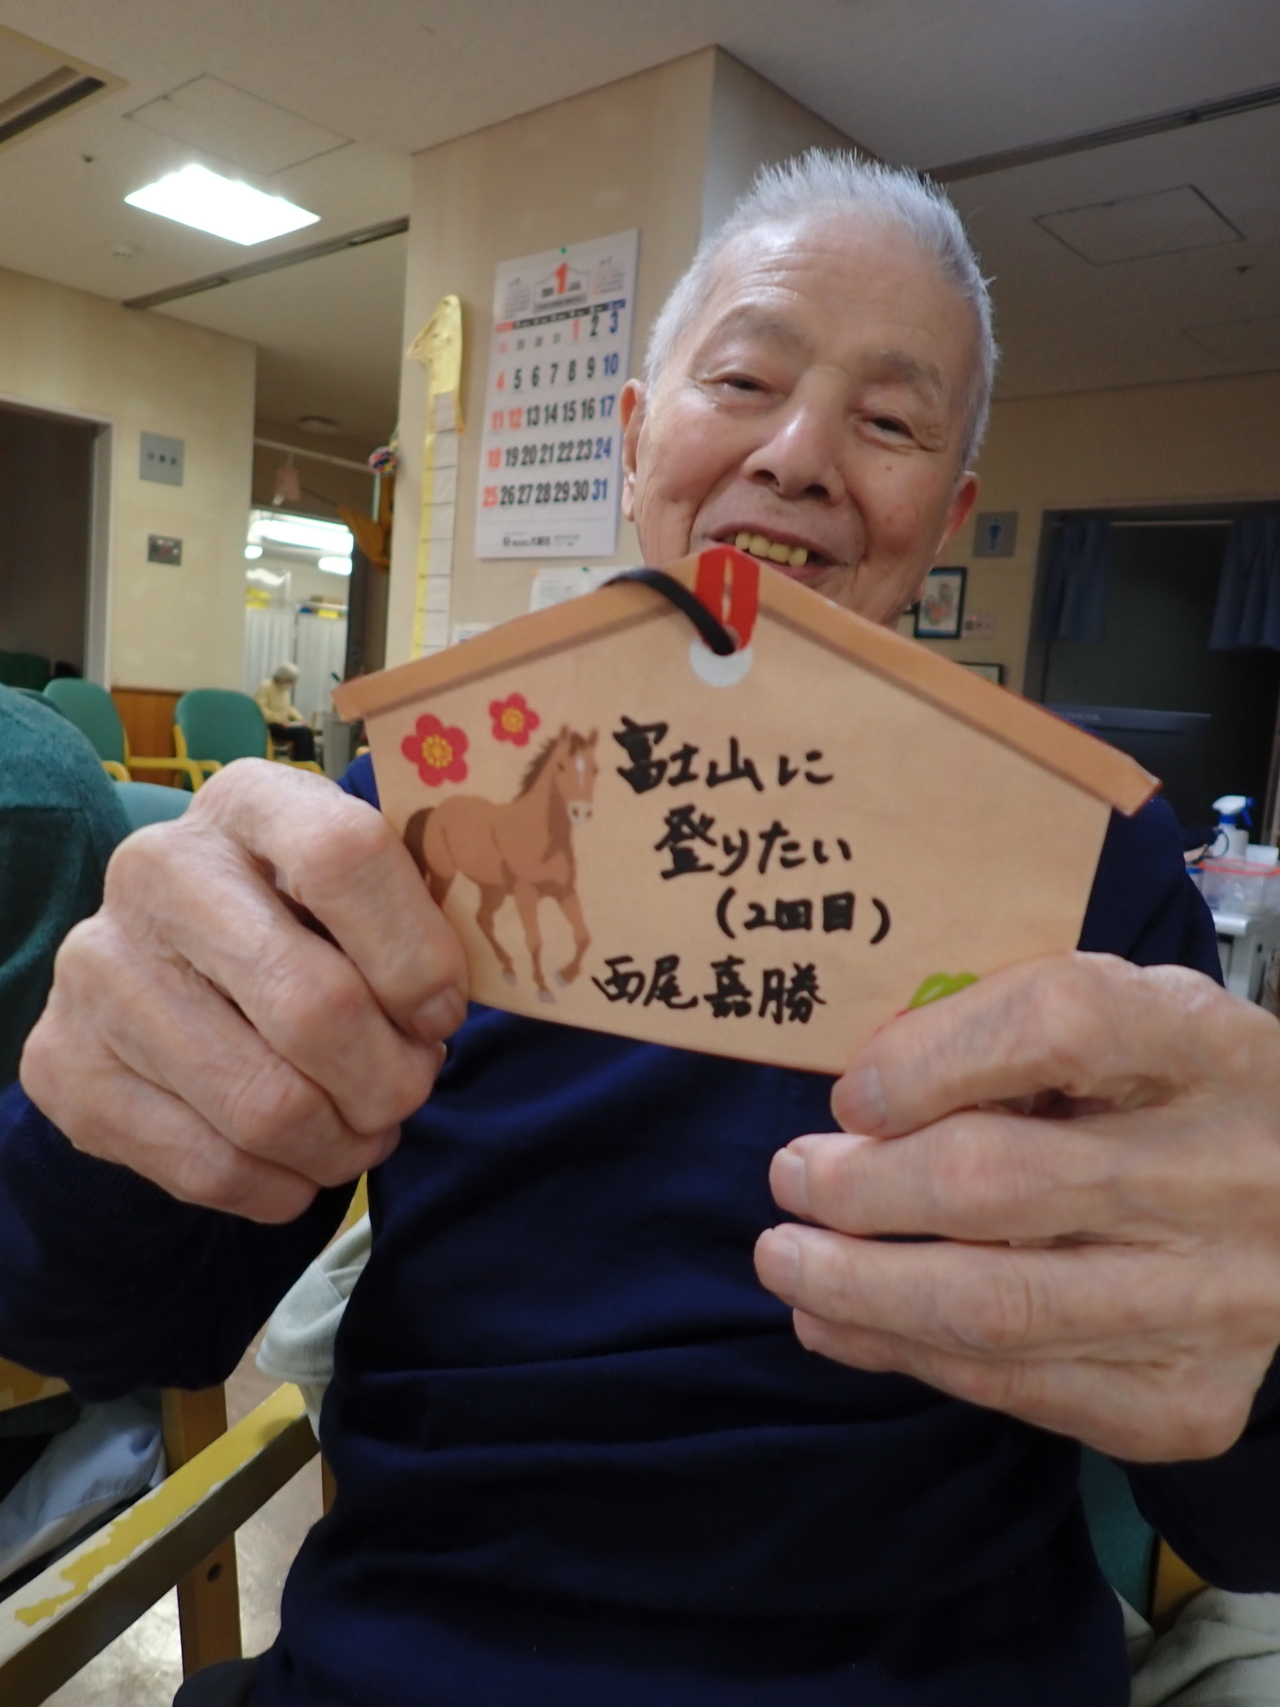 富士山に
登りたい
(2回目)
西尾嘉勝
1
1 2 3
4 5 6 7 8 9 10
11 12 13 14 15 16 17
18 19 20 21 22 23 24
25 26 27 28 29 30 31